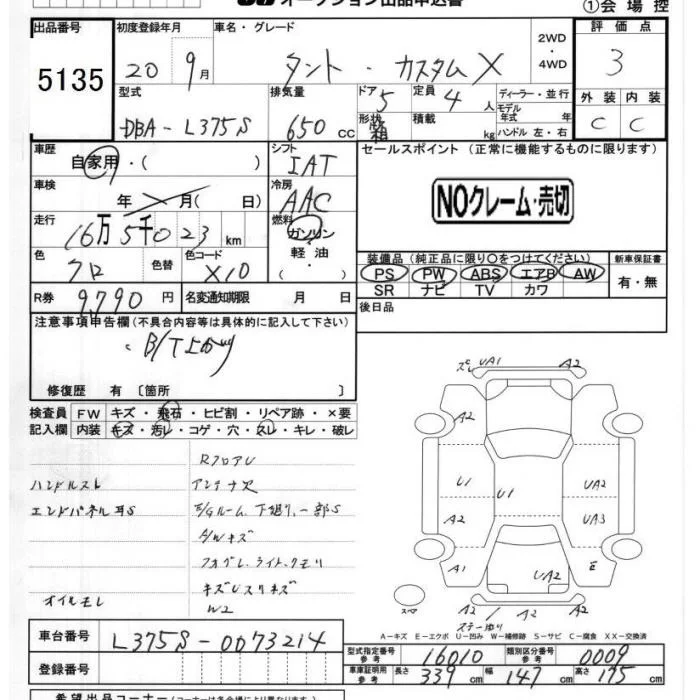 オークション出品申込書
①会場控
出品番号 初度登録年月 車名・グレード 2WD ・ 4WD 評価点
5135 20 9月 タント・カスタムX 3
型式 排気量 ドア 定員 ディーラー・並行 外装 内装
DBA-L375S 650cc 5 4人 モデル年式 年 C C
形状 箱 積載 kg ハンドル 左・右
車歴 シフト セールスポイント(正常に機能するものに限ります)
自家用・( ) IAT
車検 年 月( 日) 冷房 AAC
NOクレーム・売切
走行 16万5千023km 燃料 ガソリン・軽油・( )
色 クロ 色替 色コード X10
装備品(純正品に限り〇をつけてください) 新車保証書
PS PW ABS エアB AW 有・無
SR ナビ TV カワ
R券 9,790円 名変通知期限 月 日 後日品
注意事項申告欄(不具合内容等は具体的に記入して下さい)
B/T上がり
修復歴 有〔箇所 〕
検査員記入欄 FW キズ・飛石・ヒビ割・リペア跡・×要
内装 キズ・汚レ・コゲ・穴・スレ・キレ・破レ
RフロアU
ハンドルスレ アンテナ欠
エンドパネル耳S E/Gルーム、下廻り、一部S
A/Wキズ
フォグレ、ライト、クモリ
オイルモレ W2
UA1 A2
A2
U1 U1 UA2
A2 UA3
A1 UA2 E
スペア
A2 A2 A2
A−キズ E−エクボ U−凹み W−補修跡 S−サビ C−腐食 XX−交換済
車台番号 L375S-0073214
型式指定番号 参考 16010 類別区分番号 参考 0009
登録番号 車庫証明用 参考 長さ 339cm 幅 147cm 高さ 175cm
希望出品コーナー(コーナーは各会場により異なります)